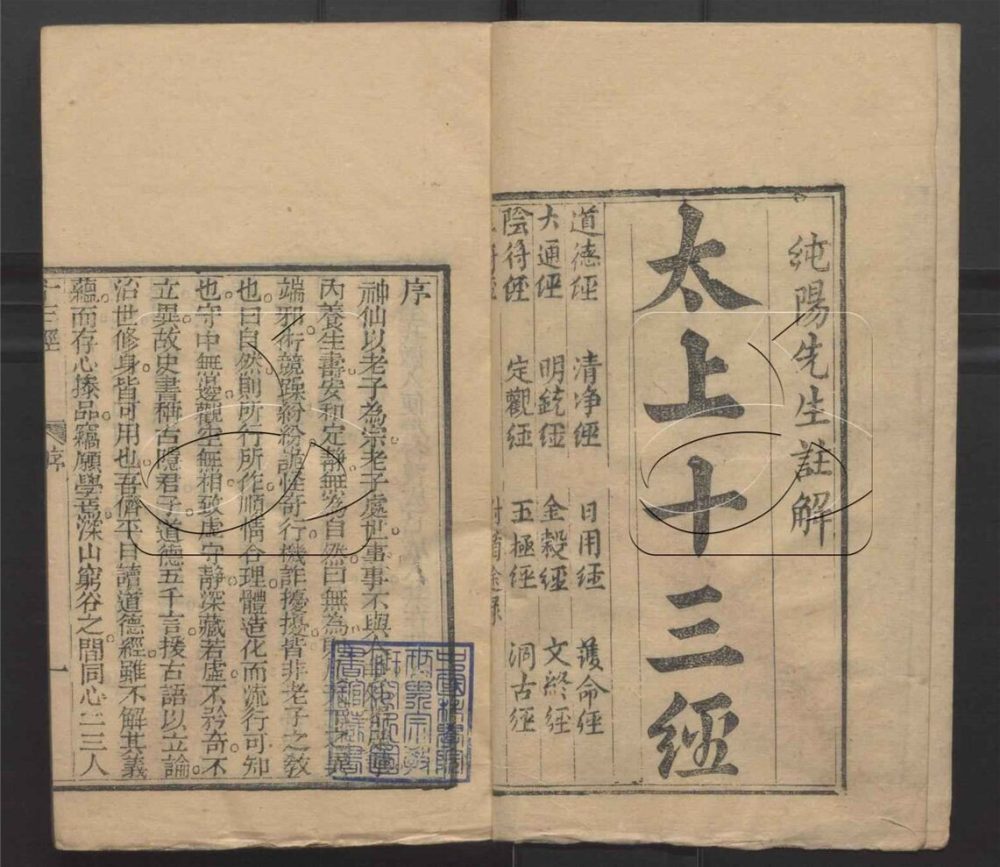 純陽先生註解
太上十三經
道德經 清净經 日用經 護命經
大通經 明鏡經 金穀經 文終經
陰符經 定觀經 五極經 洞古經
序
神仙以老子為宗老子處世事事不與
內養生壽安和定靜無為自然曰無為
端邪術競躁紛紛詭怪奇行機詐擾擾皆非老子之教
也曰自然則所行所作順情合理體造化而流行可知
也守中無邊觀空無相致虛守靜深藏若虛不矜奇不
立異故史書稱古隱君子道德五千言援古語以立論
治世修身皆可用也吾儕平日讀道德經雖不解其義
蘊而存心操品竊願學焉深山窮谷之間同心二三人
十三經 序 一